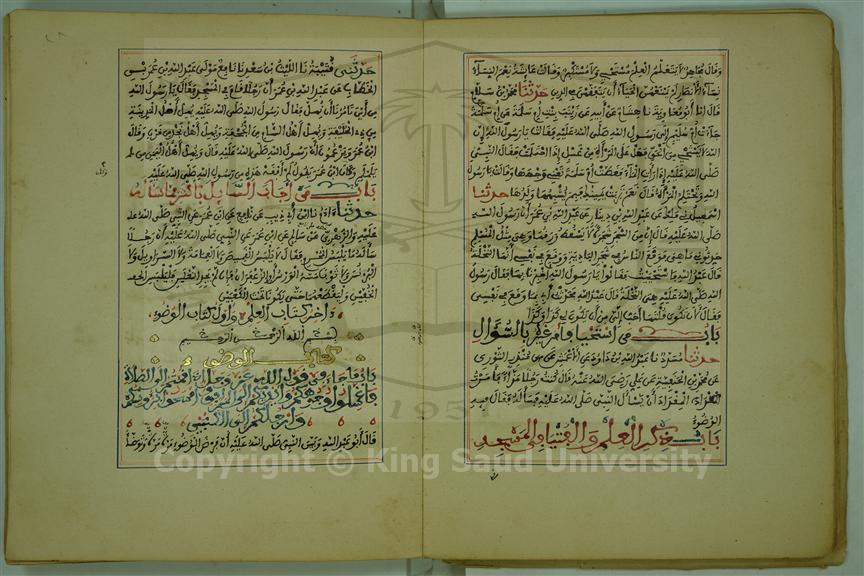 وقال مجاهد لا يتعلم العلم مستحيي ولا مستكبر وقالت عائشة نعم النساء
نساء الأنصار لم يمنعهن الحياء أن يتفقهن في الدين حدثنا محمد بن سلام
قال انا أبو معاوية نا هشام عن أبيه عن زينب بنت أم سلمة عن أم سلمة قالت
جاءت أم سليم إلى رسول الله صلى الله عليه فقالت يا رسول الله إن
الله لا يستحيي من الحق فهل على المرأة من غسل إذا احتلمت فقال النبي
صلى الله عليه إذا رأت الماء فغطت أم سلمة تعني وجهها وقالت يا رسول
الله وتحتلم المرأة قال نعم تربت يمينك فبم يشبهها ولدها حدثنا
إسمعيل نا ملك عن عبد الله بن دينار عن عبد الله بن عمر أن رسول الله
صلى الله عليه قال إن من الشجر شجرة لا يسقط ورقها وهي مثل المسلم
حدثوني ما هي فوقع الناس في شجر البادية ووقع في نفسي أنها النخلة
قال عبد الله فاستحييت فقالوا يا رسول الله أخبرنا بها فقال رسول
الله صلى الله عليه هي النخلة قال عبد الله فحدثت أبي بما وقع في نفسي
فقال لأن تكون قلتها أحب إلي من أن يكون لي كذا وكذا
باب من استحيا فأمر غيره بالسؤال
حدثنا مسدد نا عبد الله بن داود عن الأعمش عن منذر الثوري
عن محمد بن الحنفية عن علي رضي الله عنه قال كنت رجلا مذاء فأمرت
المقداد أن يسأل النبي صلى الله عليه فسأله فقال فيه
الوضوء
باب ذكر العلم والفتيا في المسجد
حدثني قتيبة نا الليث بن سعد نا نافع مولى عبد الله بن عمر بن
الخطاب عن عبد الله بن عمر أن رجلا قام في المسجد فقال يا رسول الله
من أين تأمرنا أن نهل فقال رسول الله صلى الله عليه يهل أهل المدينة
من ذي الحليفة ويهل أهل الشام من الجحفة ويهل أهل نجد من قرن وقال
ابن عمر ويزعمون أن رسول الله صلى الله عليه قال ويهل أهل اليمن من
يلملم وكان ابن عمر يقول لم أفقه هذه من رسول الله صلى الله عليه
باب من أجاب السائل بأكثر مما سأله
حدثنا آدم نا ابن أبي ذيب عن نافع عن ابن عمر عن النبي صلى الله
عليه والزهري عن سالم عن ابن عمر عن النبي صلى الله عليه أن رجلا
سأله ما يلبس المحرم فقال لا يلبس القميص ولا العمامة ولا السراويل ولا
البرنس ولا ثوبا مسه الورس أو الزعفران فإن لم يجد النعلين فليلبس
الخفين وليقطعهما حتى يكونا تحت الكعبين
آخر كتاب العلم وأول كتاب الوضوء
بسم الله الرحمن الرحيم
كتاب الوضوء
باب ما جاء في قول الله عز وجل إذا قمتم إلى الصلاة
فاغسلوا وجوهكم وأيديكم إلى المرافق وامسحوا برءوسكم
وأرجلكم إلى الكعبين
قال أبو عبد الله وبين النبي صلى الله عليه أن فرض الوضوء مرة مرة وتوضأ
Copyright © King Saud University
195